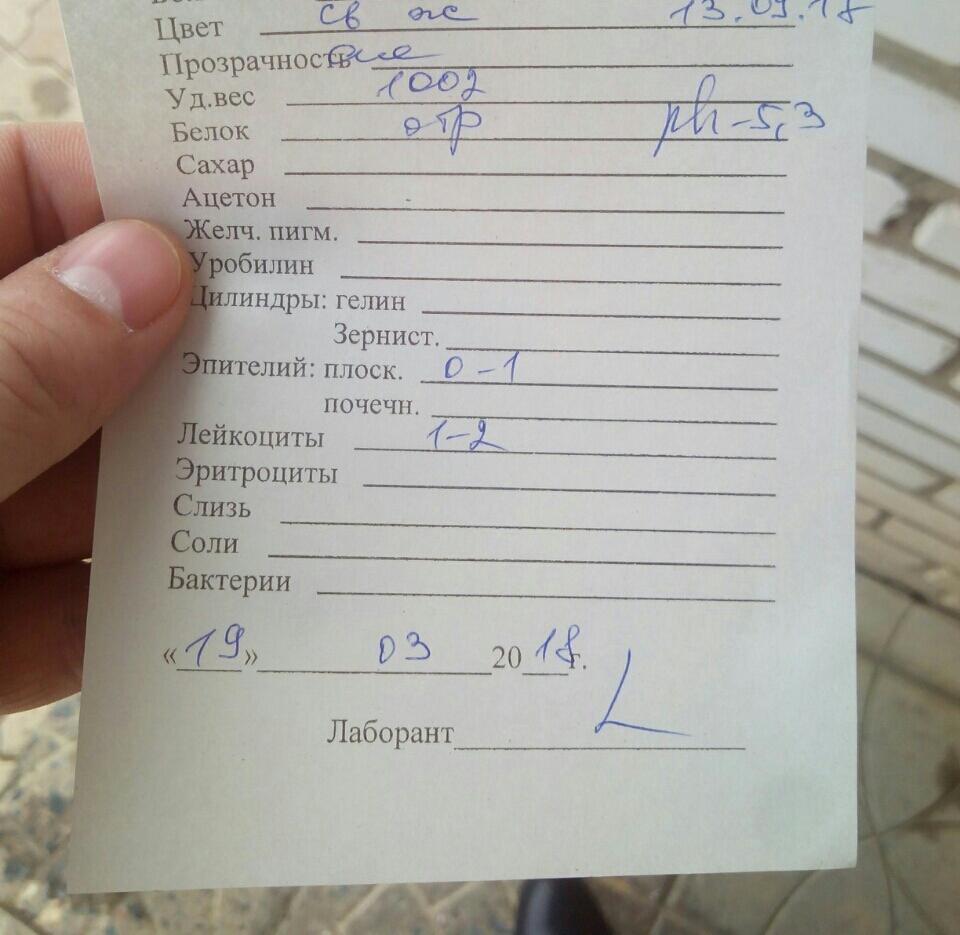 Цвет св ж 13.09.18
Прозрачность
Уд.вес 1002
Белок отр ph-5,3
Сахар
Ацетон
Желч. пигм.
Уробилин
Цилиндры: гелин
Зернист.
Эпителий: плоск. 0-1
почечн.
Лейкоциты 1-2
Эритроциты
Слизь
Соли
Бактерии
«19» 03 2018г.
Лаборант